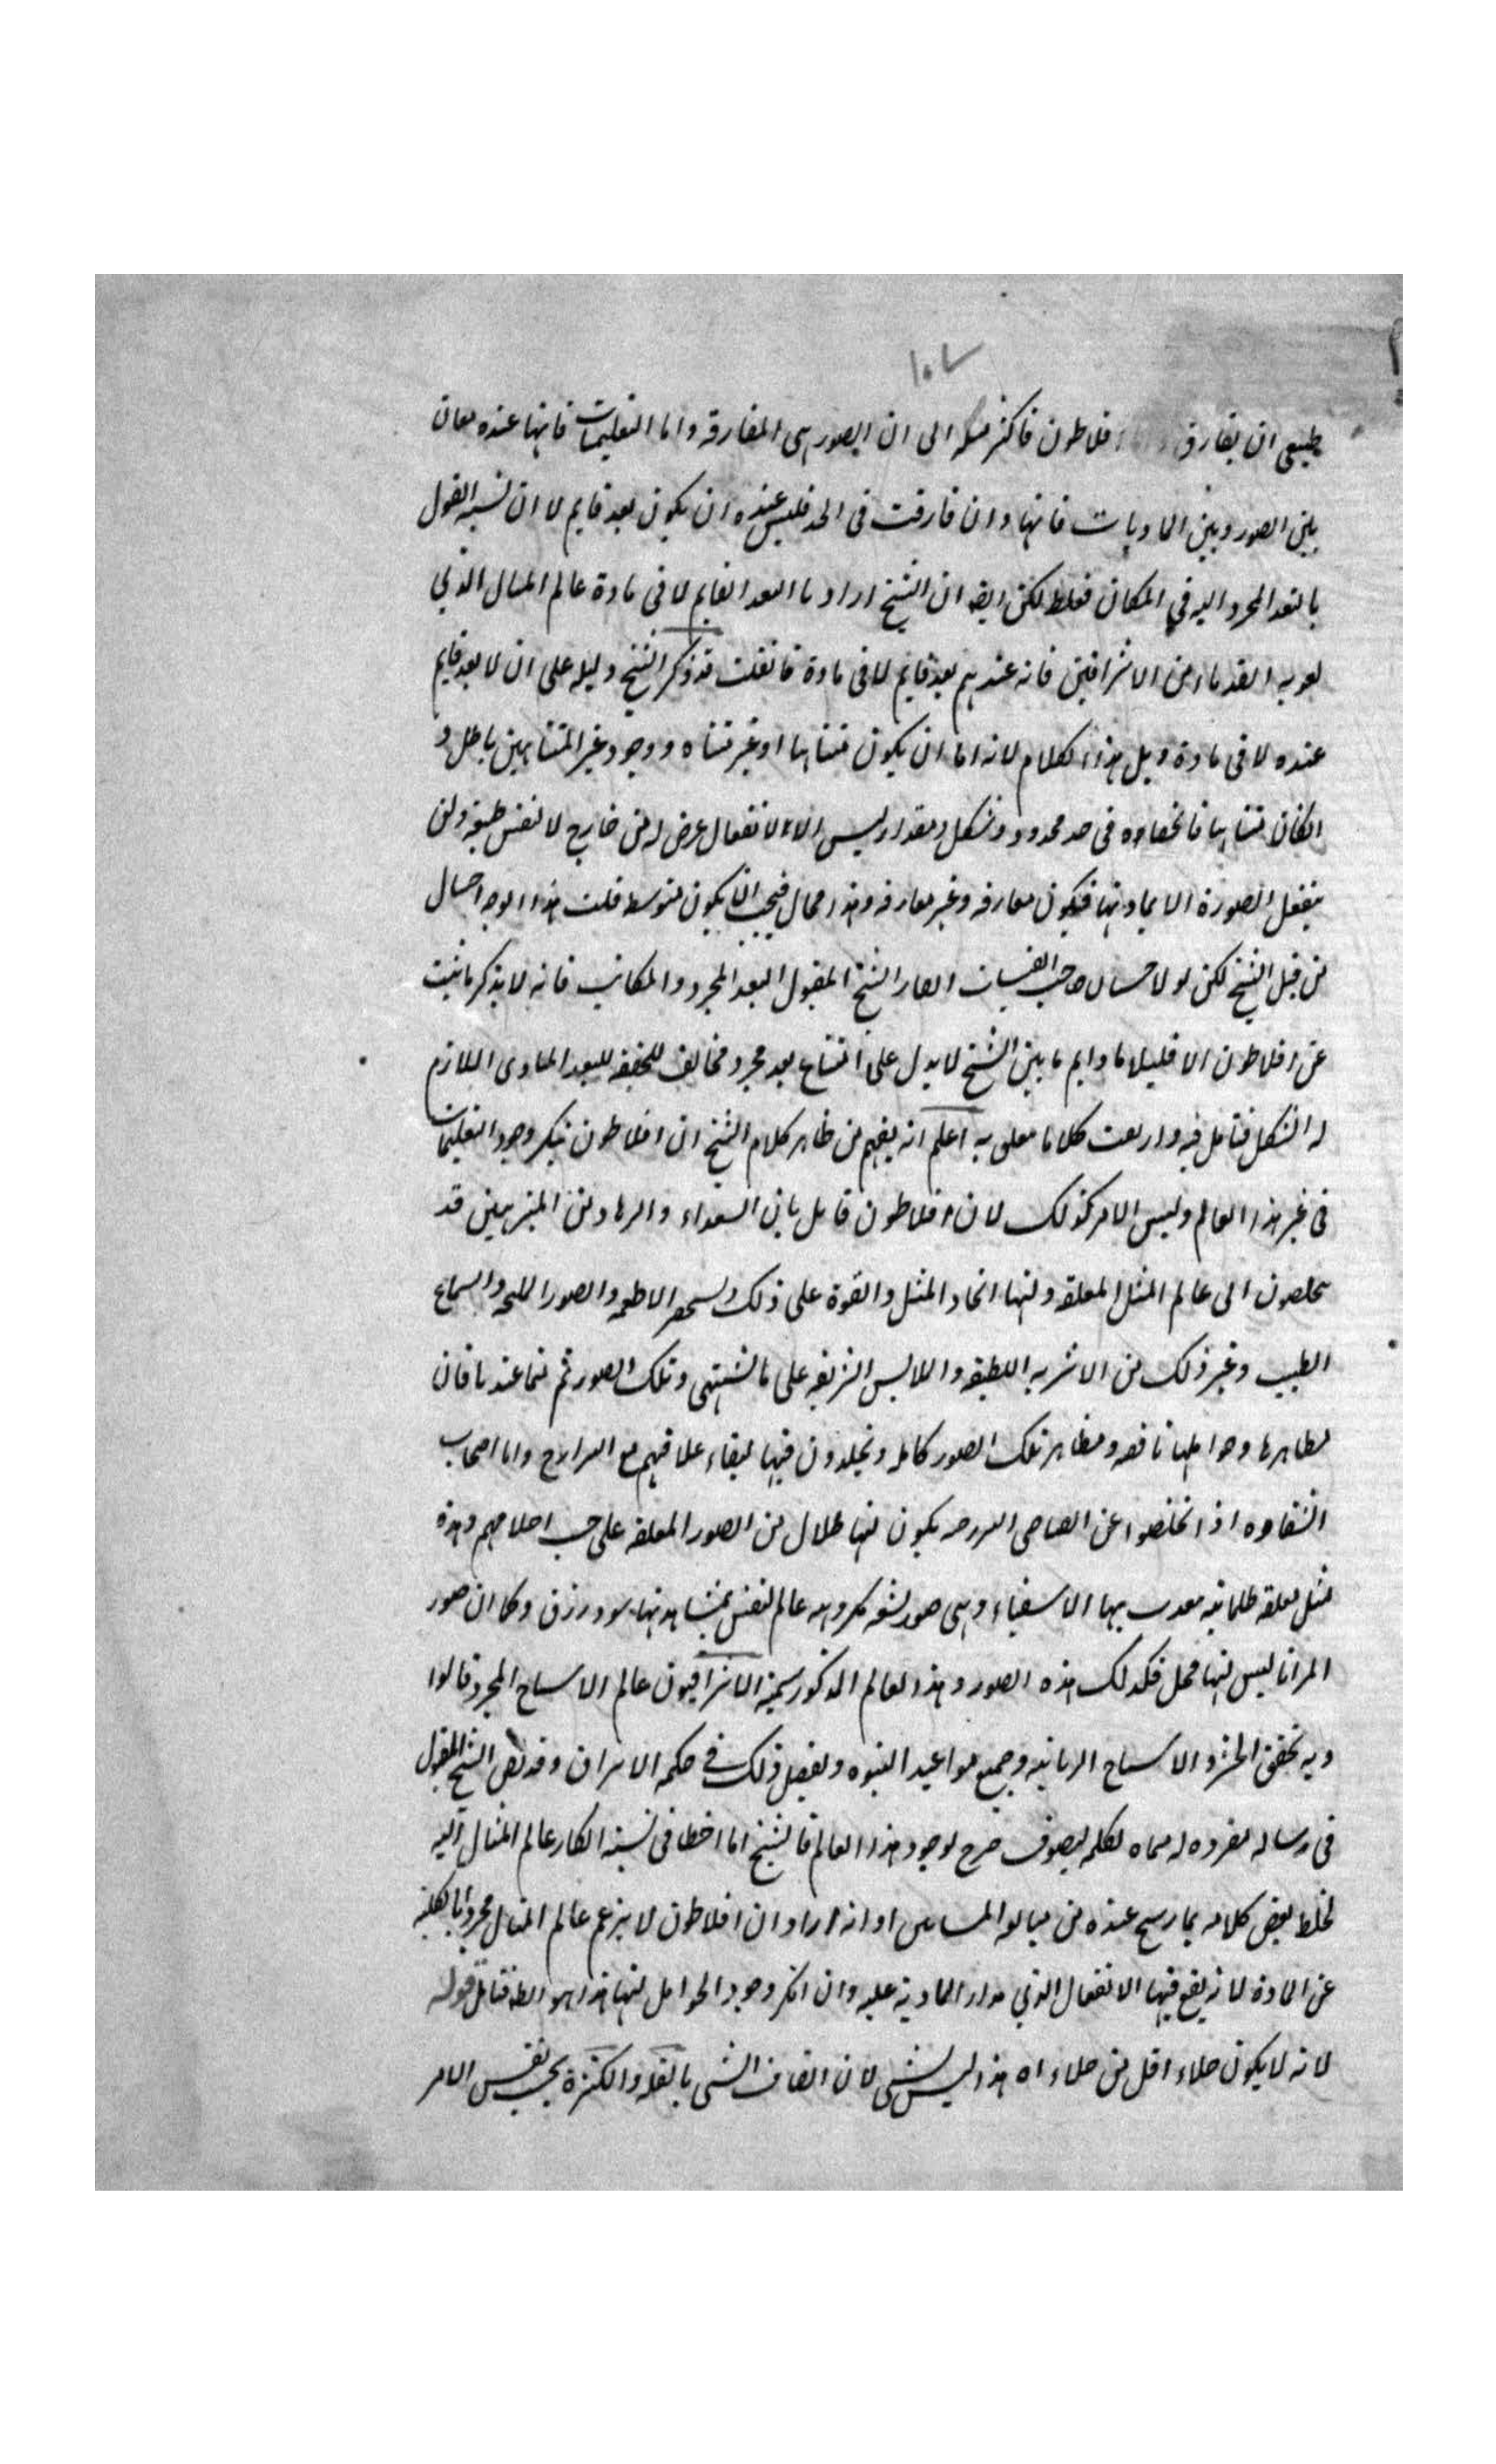 ١٠٧
طبيعى ان يفارق افلاطون فاكثر ميله الى ان الصور هى المفارقه واما التعليميات فانها عنده معان
بين الصور وبين الماديات فانها وان فارقت فى الحد فليس عنده ان يكون بعد قايم لا ان نسبه القول
بالبعد المجرد اليه في المكان فغلط لكن ايضا ان الشيخ اراد بالبعد القايم لا فى مادة عالم المثال الذي
القدماء من الاشراقيين فانه عندهم بعد قايم لا فى مادة فان قلت قد ذكر الشيخ دليله على ان لا بعد قايم
عنده لا فى مادة قبل هذا الكلام لانه اما ان يكون متناهيا او غير متناه ووجود غير المتناهى باطل و
الكان متناهيا فانحصاره فى حد محدود وشكل مقدر ليس الا لانفعال عرض له من خارج لا لنفس طبيعته ولن
ينفعل الصورة الا بمادتها فيكون مفارقه وغير مفارقه وهذا محال فيجب ان يكون متوسط قلت هذا الوجه احتمال
من قبل الشيخ لكن لولا الشيخ المقتول البعد المجرد والمكانى فانه لا يذكر ما يثبت
عن افلاطون الا قليلا ما دايم ما بين الشيخ لا يدل على امتناع بعد مجرد مخالف للحقيقه للبعد المادى اللازم
له الشكل فتامل فيه كلاما اعلم انه يفهم من ظاهر كلام الشيخ ان افلاطون ينكر وجود التعليميات
فى غير هذا العالم وليس الامر كذلك لان افلاطون قايل بان السعداء والزهاد من المتنزهين قد
يتخلصون الى عالم المثل المعلقه ولها ايجاد المثل والقوة على ذلك ويستحضر الاطعمه والصور المليحه والسماع
الطيب وغير ذلك من الاشربه اللطيفه والملابس الشريفه على ما تشتهى وتلك الصور ثم مما عندنا فان
مظاهرها وحواملها ناقصه ومظاهر تلك الصور كامله ويخلدون فيها لبقاء علاقتهم مع البرازخ واما اصحاب
الشقاوه اذا تخلصوا عن الصياصى البرزخيه يكون لها ظلال من الصور المعلقه على حسب اخلاقهم وهذه
مثل معلقه ظلمانيه معذب بها الاشقياء وهى صور مكروهه عالم النفس بمشاهدتها سود وزرق وكما ان صور
المرايا ليس لها محل فكذلك هذه الصور وهذا العالم المذكور يسميه الاشراقيون عالم الاشباح المجرد قالوا
وبه تحقق الحشر والاشباح الربانيه وجميع مواعيد النبوه وتفصيل ذلك في حكمه الاشراق وقد نص الشيخ المقتول
فى رساله مفرده له سماه لكلمه التصوف صرح بوجود هذا العالم فالشيخ اما اخطا فى نسبة انكار عالم المثال اليه
لخلط بعض كلامه بما رسخ عنده من او انه اراد ان افلاطون لا يزعم عالم المثال مجردا بالكليه
عن المادة لانه يقع فيها الانفعال الذي مدار الماديه عليه وان انكر وجود الحوامل لها هذا هو الظ فتامل قوله
لانه لا يكون خلاء اقل من خلاء اه هذا ليس بشى لان اتصاف الشى بالقله والكثرة بحسب نفس الامر